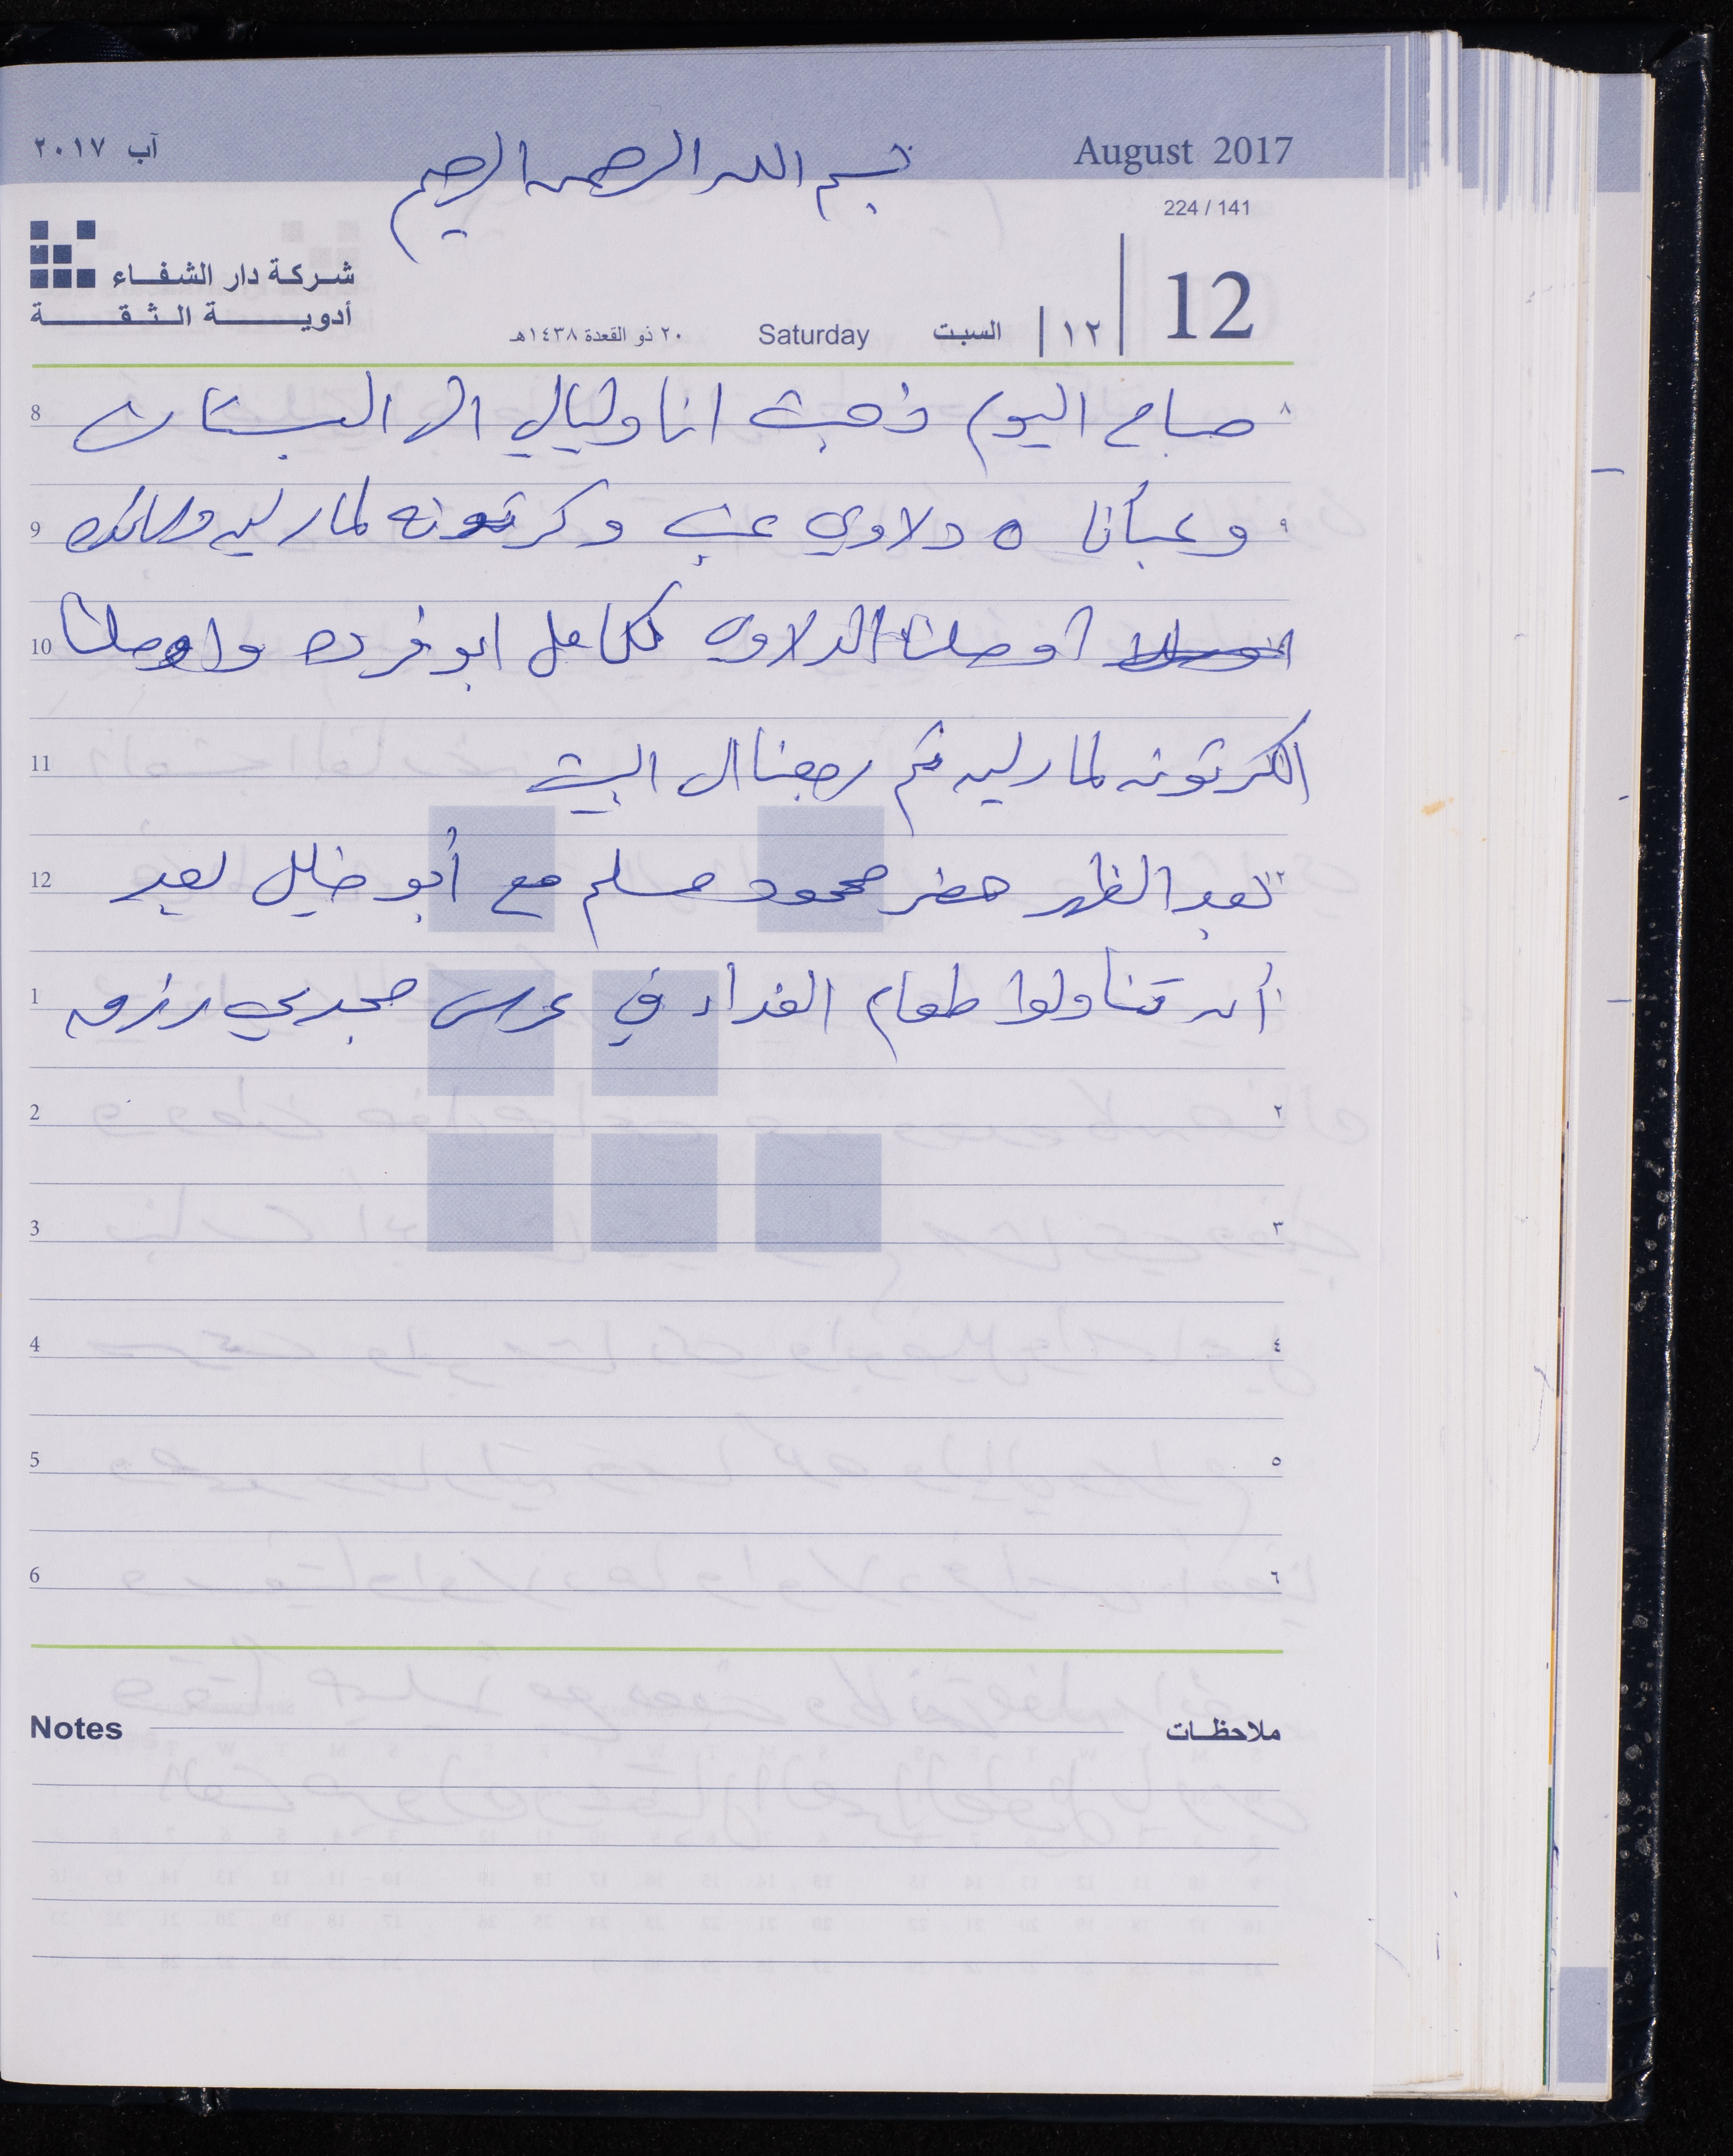 آب ٢٠١٧
بسم الله الرحمن الرحيم
August 2017
224 / 141
شركة دار الشفاء
أدوية الثقة
٢٠ ذو القعدة ١٤٣٨هـ Saturday السبت ١٢ 12
8 صباح اليوم ذهبت انا وليالي الى البستان ٨
9 وعبأنا ٥ دلاوي عنب وكرتونه لمارليه ٩
10 اوصلنا الدلاوي لكامل ابو فرده واوصلنا
11 الكرتونه لمارليه ثم رجعنا الى البيت
12 بعد الظهر حضر محمود مسلم مع أبو خليل بعد ١٢
1 أن تناولوا طعام الغداء في عرس مجدي رزق ١
2 ٢
3 ٣
4 ٤
5 ٥
6 ٦
Notes ملاحظات